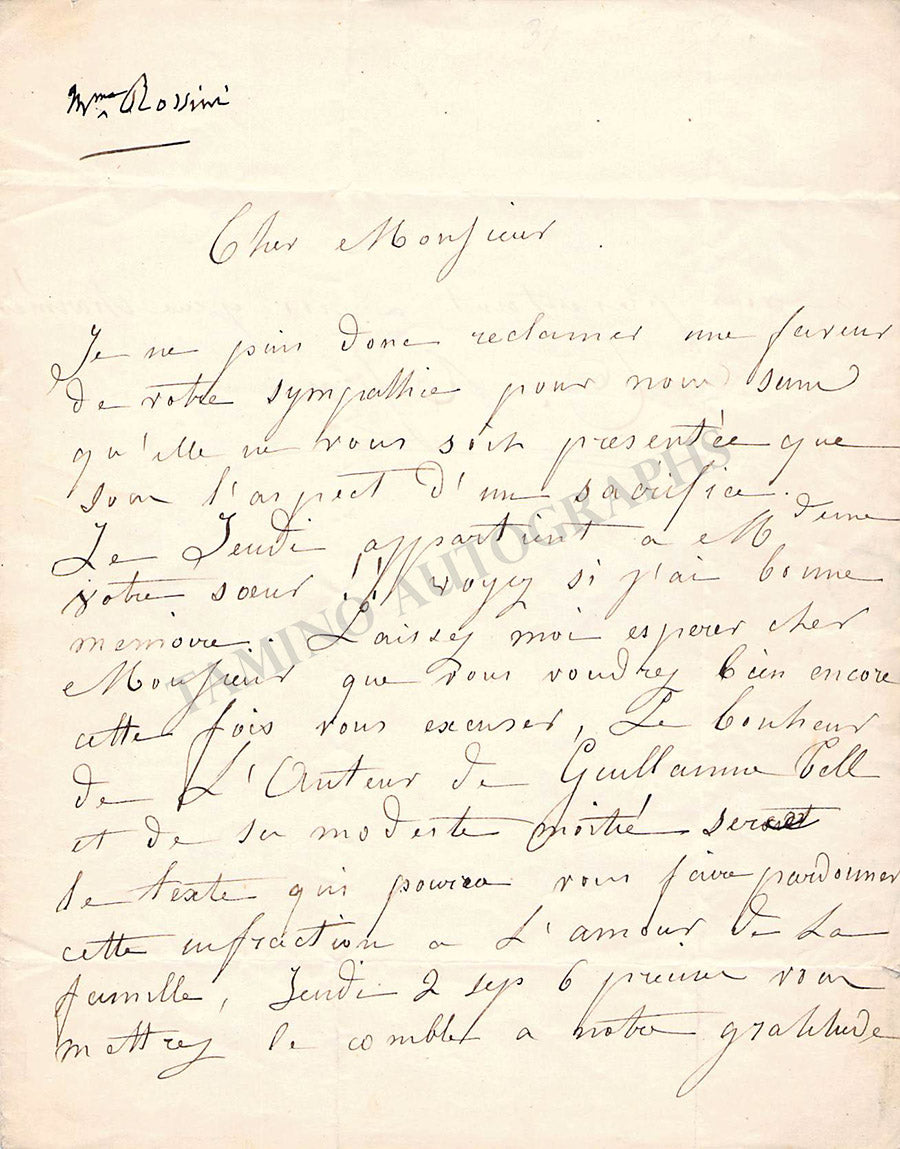 Mme Rossini
Cher Monsieur
Je ne puis donc reclamer une faveur
de votre sympathie pour nous sans
qu'elle ne vous soit presentée que
sous l'aspect d'un sacrifice.
Le Jeudi appartient a Mdeme
votre sœur !! voyez si j'ai bonne
memoire. Laissez moi esperer cher
Monsieur que vous voudrez bien encore
cette fois vous excuser, Le bonheur
de L'Auteur de Guillaume Tell
et de sa modeste moitié sera
le texte qui pourra vous faire pardonner
cette infraction a L'amour de La
famille, Jeudi 2 sep 6 precise vous
mettrez le comble a notre gratitude
TAMINO AUTOGRAPHS